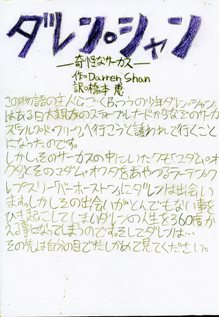 ダレン・シャン
―奇怪なサーカス―
作・Darren Shan
訳・橋本 恵
この物語の主人公 ごくふつうの少年ダレン・シャン
はある日大親友のスティーブ・レナードから
サーカス
シルク・ド・フリークへ行こうと誘われて行くこと
になったのです。
しかし、そのサーカスの中にいたクモ
をあやつる
に ダレンは出会い
ます。しかしその出会いがとんでもない事を
ひき起こしてしまいダレンの人生を360度か
える事になってしまうのです。そしてダレンは…
その先は自分の目でたしかめて見てください。